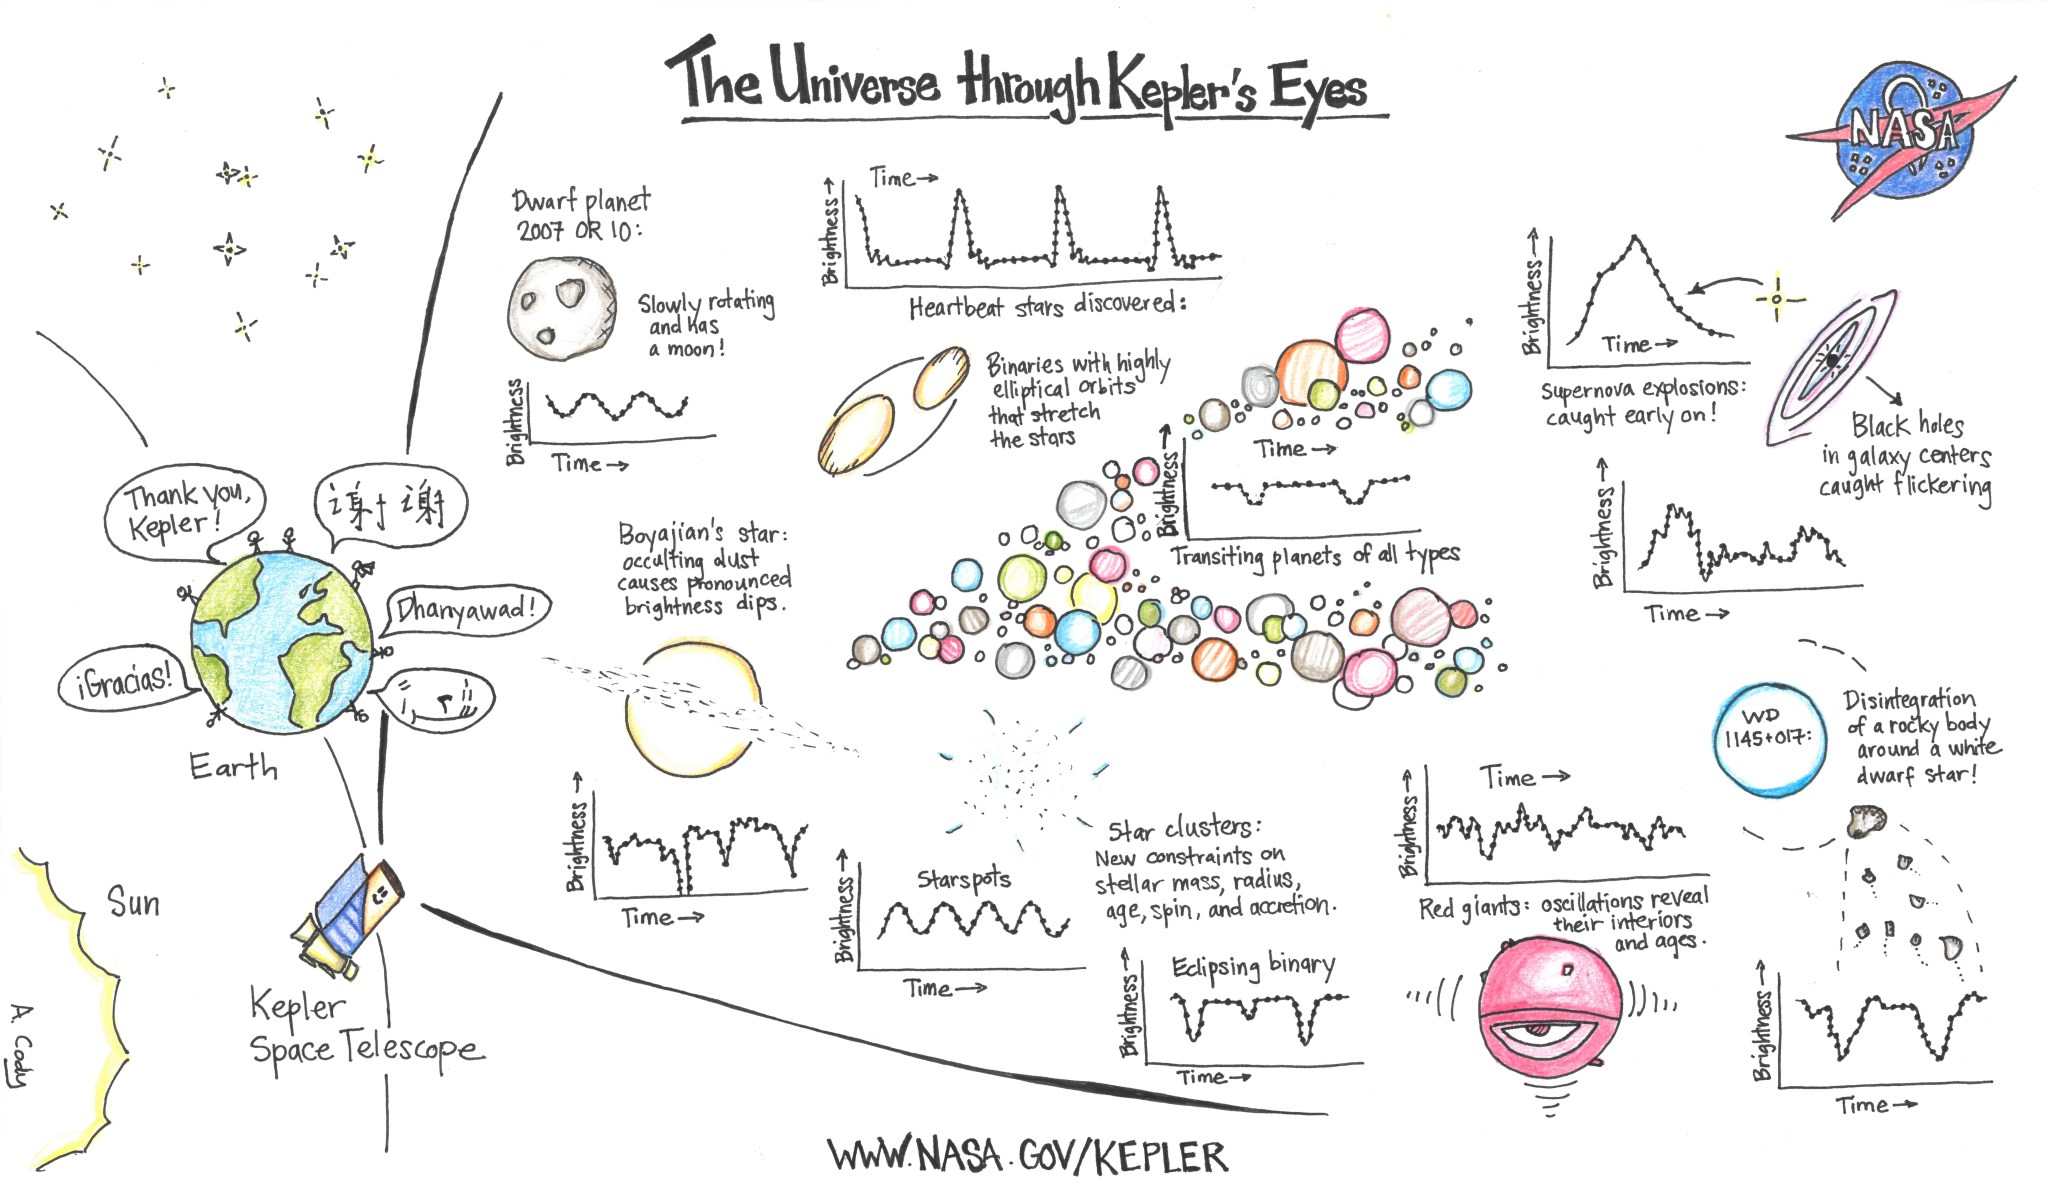 The Universe through Kepler's Eyes
NASA
Dwarf planet
2007 OR 10:
Slowly rotating
and has
a moon!
Brightness →
Time →
Time →
Brightness →
Heartbeat stars discovered:
Binaries with highly
elliptical orbits
that stretch
the stars
Brightness →
Time →
Supernova explosions:
caught early on!
Black holes
in galaxy centers
caught flickering
Brightness →
Time →
Time →
Brightness →
Transiting planets of all types
Thank you,
Kepler!
Dhanyawad!
¡Gracias!
Earth
Boyajian's star:
occulting dust
causes pronounced
brightness dips.
Brightness →
Time →
Star clusters:
New constraints on
stellar mass, radius,
age, spin, and accretion.
Starspots
Brightness →
Time →
Eclipsing binary
Brightness →
Time →
Time →
Brightness →
Red giants: oscillations reveal
their interiors
and ages.
WD
1145+017:
Disintegration
of a rocky body
around a white
dwarf star!
Brightness →
Time →
Sun
Kepler
Space Telescope
A. Cody
WWW.NASA.GOV/KEPLER